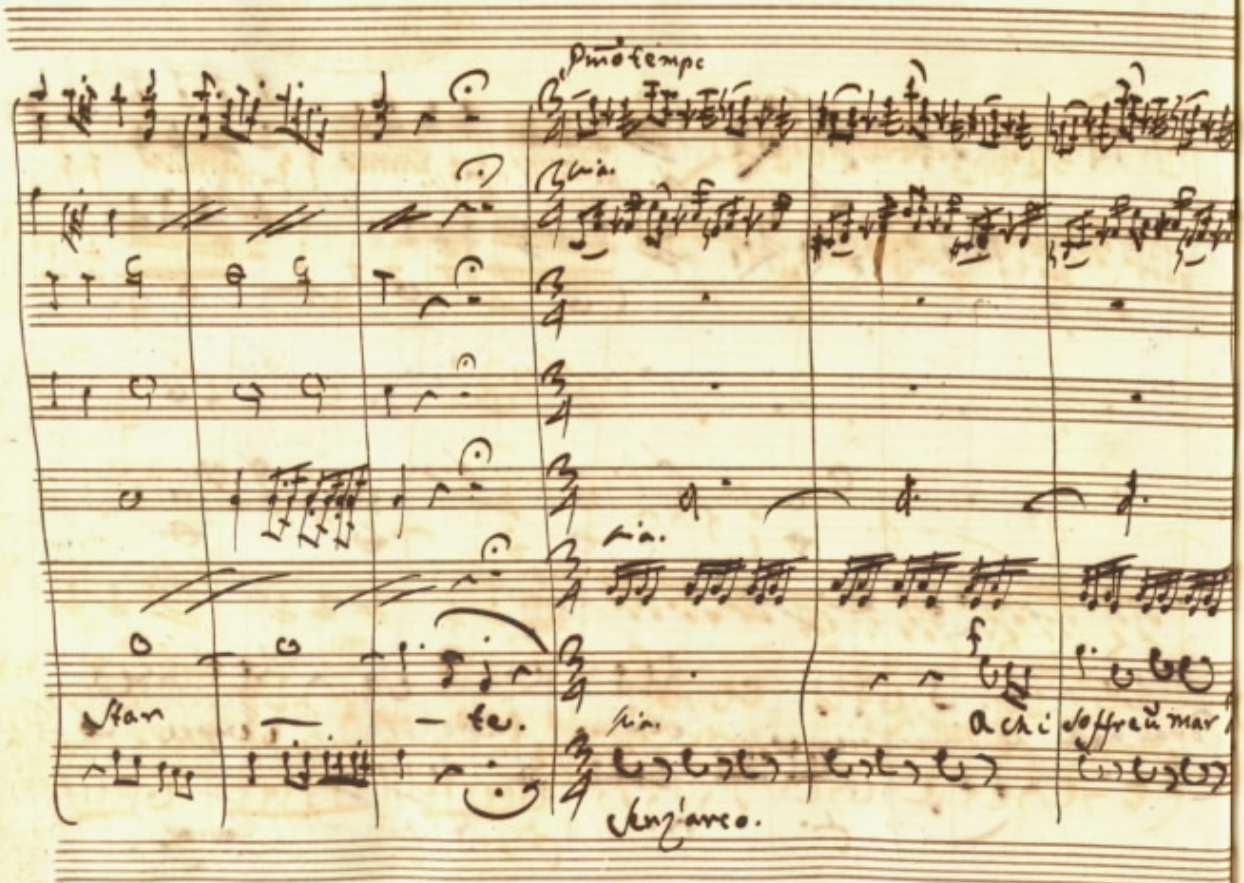 Pmo tempo
pia.
pia.
Stan — — te. pia. a chi soffre ū mar
Senz'arco.